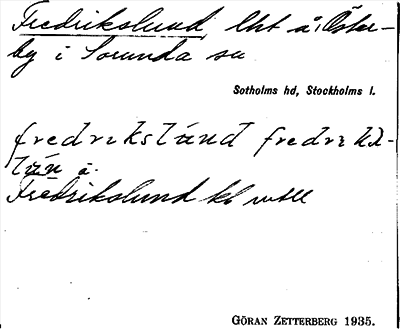 Fredrikslund, lht å Öster-
by i Sorunda sn
Sotholms hd, Stockholms l.
fredrikslund fredriks-
lún å.
Fredrikslund kl
GÖRAN ZETTERBERG 1935.